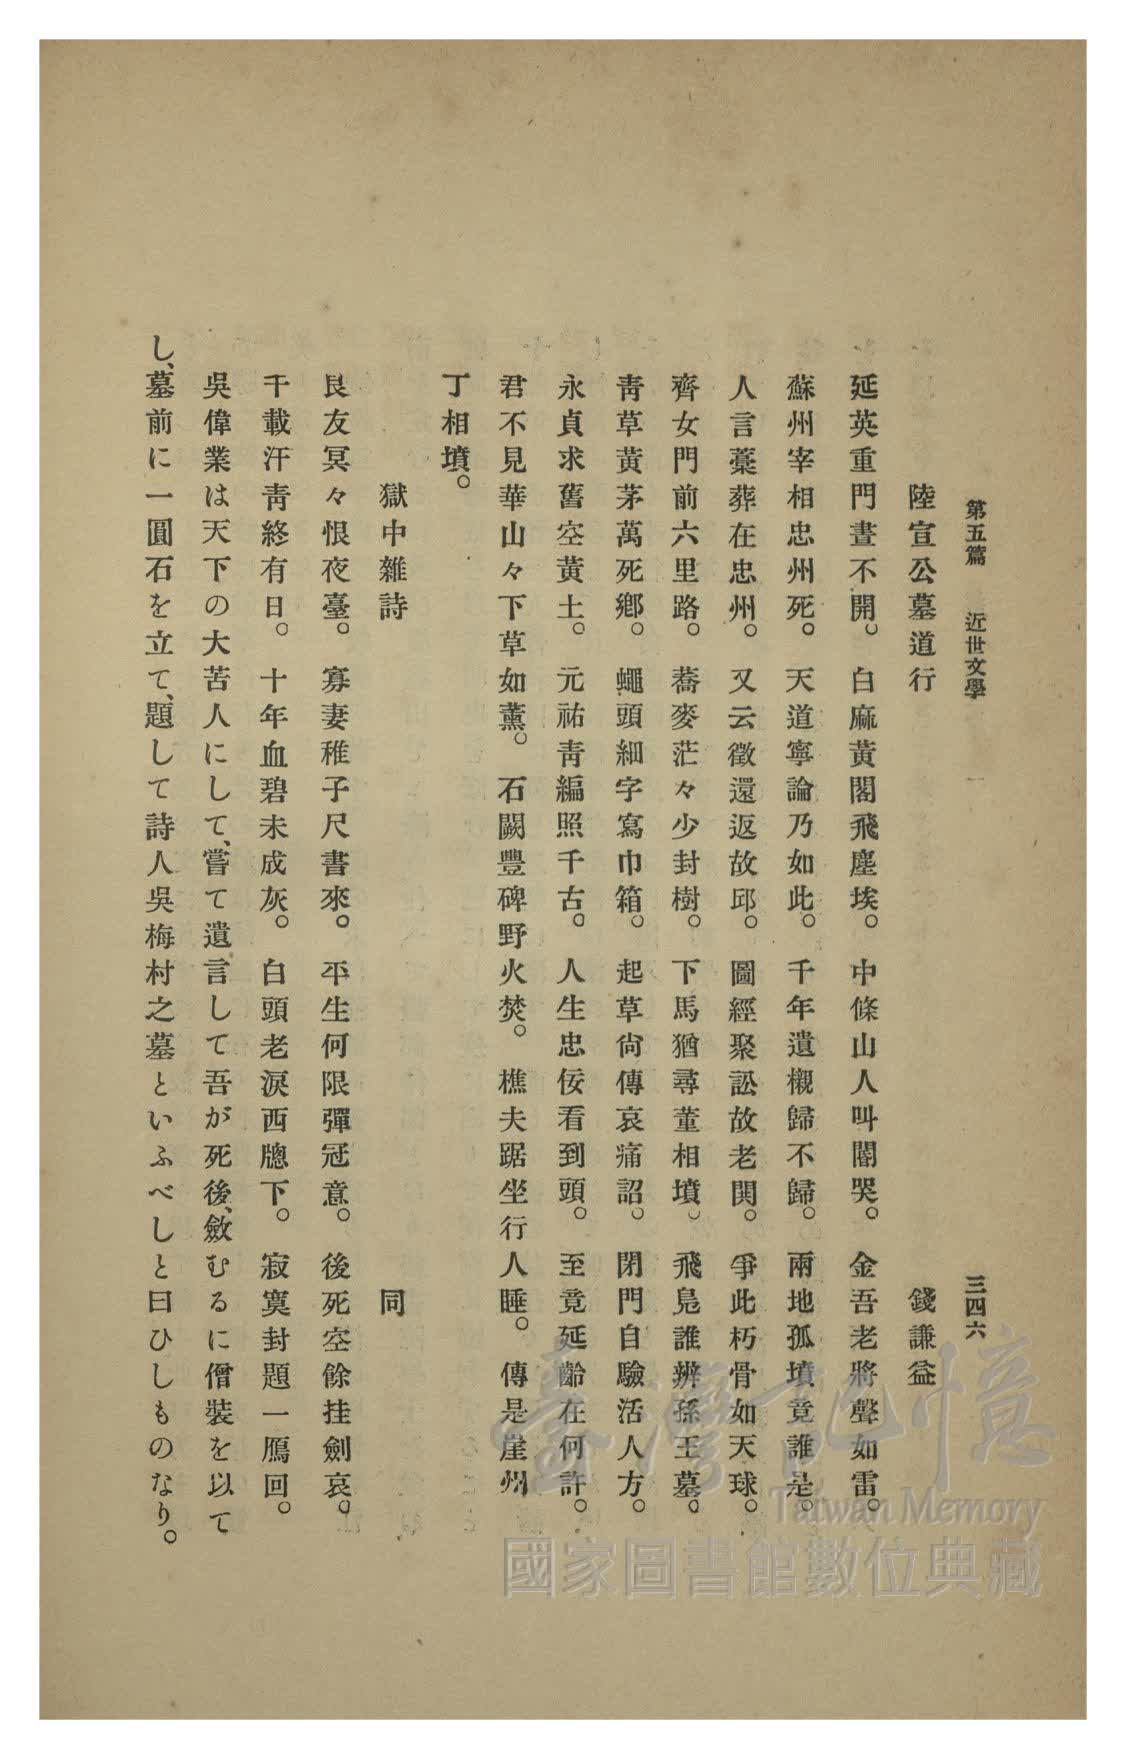 第五篇　近世文學　三四六
陸宣公墓道行　錢謙益
延英重門晝不開。白麻黃閣飛塵埃。中條山人叫閽哭。金吾老將聲如雷。
蘇州宰相忠州死。天道寧論乃如此。千年遺櫬歸不歸。兩地孤墳竟誰是。
人言藁葬在忠州。又云徵還返故邱。圖經聚訟故老鬨。爭此朽骨如天球。
齊女門前六里路。蕎麥茫々少封樹。下馬猶尋董相墳。飛鳧誰辨孫王墓。
靑草黃茅萬死鄕。蠅頭細字寫巾箱。起草尙傳哀痛詔。閉門自驗活人方。
永貞求舊空黃土。元祐靑編照千古。人生忠佞看到頭。至竟延齡在何許。
君不見華山々下草如薰。石闕豐碑野火焚。樵夫踞坐行人睡。傳是崖州
丁相墳。
獄中雜詩　同
良友冥々恨夜臺。寡妻稚子尺書來。平生何限彈冠意。後死空餘挂劍哀。
千載汗靑終有日。十年血碧未成灰。白頭老淚西牕下。寂寞封題一鴈回。
吳偉業は天下の大苦人にして、嘗て遺言して吾が死後、斂むるに僧裝を以て
し、墓前に一圓石を立て、題して詩人吳梅村之墓といふべしと曰ひしものなり。
臺灣記憶
Taiwan Memory
國家圖書館數位典藏